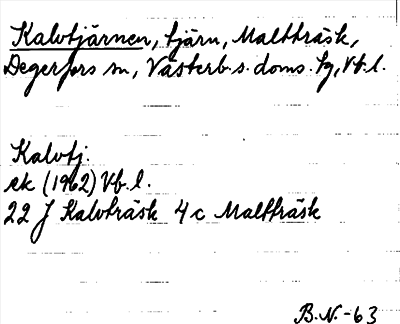 Kalvtjärnen, tjärn, Maltträsk,
Degerfors sn, Västerb. s. doms. tg, Vb. l.
Kalvtj.
ek (1962) Vb. l.
22 J Kalvträsk 4 c Maltträsk
B.N.-63